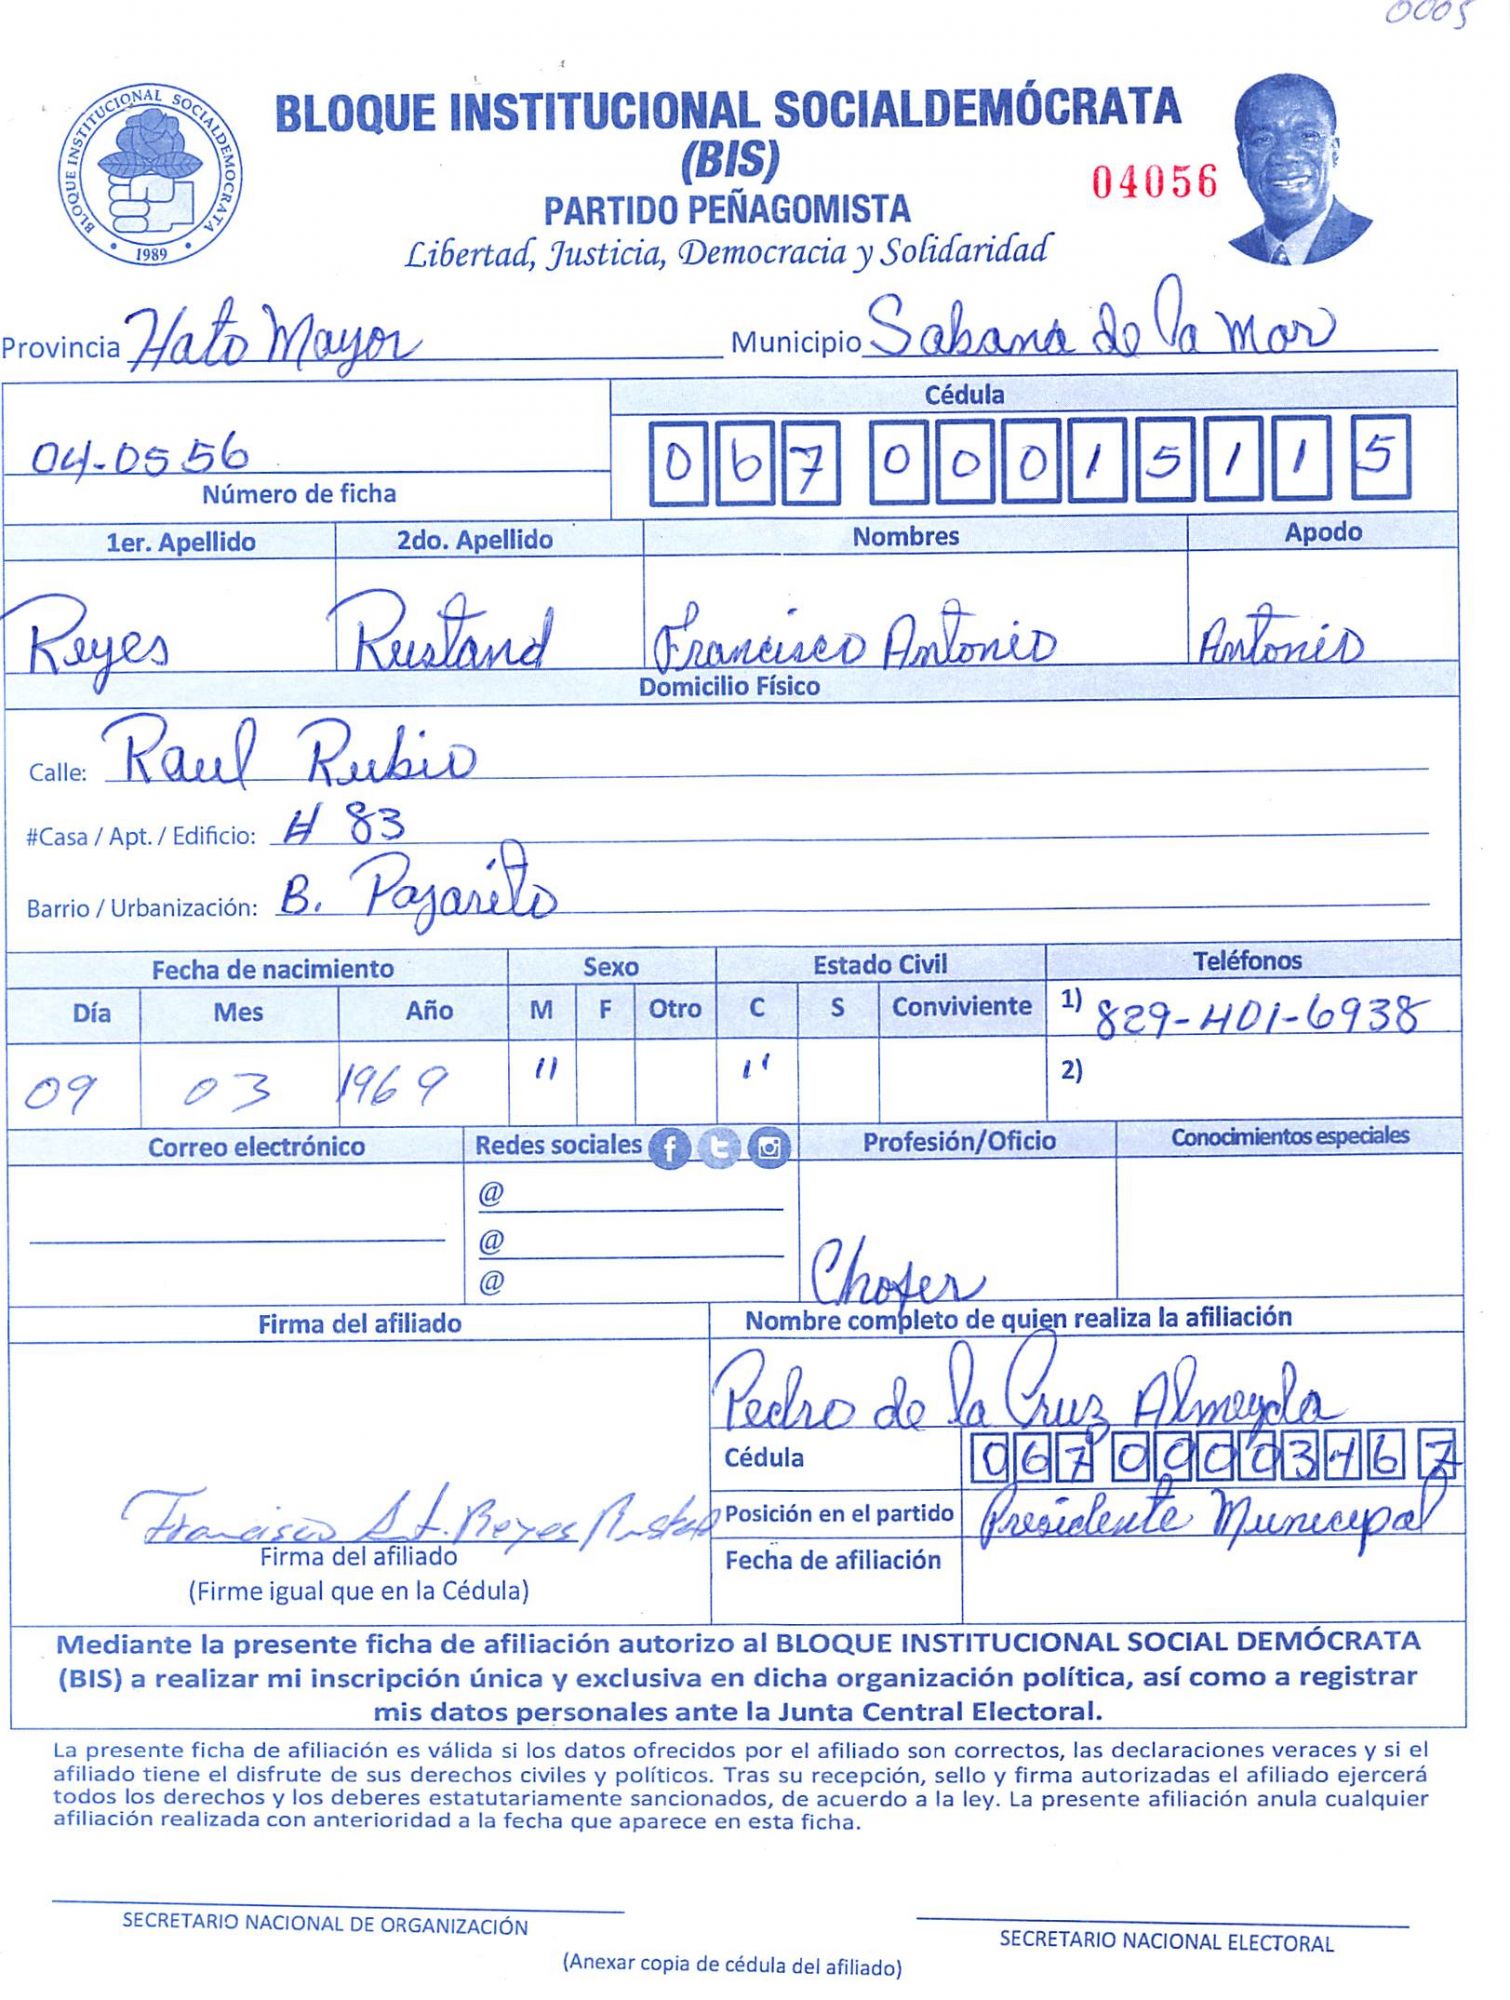 0005
BLOQUE INSTITUCIONAL SOCIALDEMÓCRATA
(BIS)
PARTIDO PEÑAGOMISTA
04056
Libertad, Justicia, Democracia y Solidaridad
BLOQUE INSTITUCIONAL SOCIALDEMOCRATA
1989
Provincia Hato Mayor Municipio Sabana de la Mar
Cédula
04-0556 067 0001511 5
Número de ficha
1er. Apellido 2do. Apellido Nombres Apodo
Reyes Rustand Francisco Antonio Antonio
Domicilio Físico
Calle: Raul Rubio
#Casa / Apt. / Edificio: # 83
Barrio / Urbanización: B. Pajarito
Fecha de nacimiento Sexo Estado Civil Teléfonos
Día Mes Año M F Otro C S Conviviente 1) 829-401-6938
09 03 1969 " " 2)
Correo electrónico Redes sociales Profesión/Oficio Conocimientos especiales
@
@
@ Chofer
Firma del afiliado Nombre completo de quien realiza la afiliación
Pedro de la Cruz Almeyda
Cédula 067 0000346 7
Francisco Ant. Reyes Rustand Posición en el partido Presidente Municipal
Firma del afiliado Fecha de afiliación
(Firme igual que en la Cédula)
Mediante la presente ficha de afiliación autorizo al BLOQUE INSTITUCIONAL SOCIAL DEMÓCRATA
(BIS) a realizar mi inscripción única y exclusiva en dicha organización política, así como a registrar
mis datos personales ante la Junta Central Electoral.
La presente ficha de afiliación es válida si los datos ofrecidos por el afiliado son correctos, las declaraciones veraces y si el
afiliado tiene el disfrute de sus derechos civiles y políticos. Tras su recepción, sello y firma autorizadas el afiliado ejercerá
todos los derechos y los deberes estatutariamente sancionados, de acuerdo a la ley. La presente afiliación anula cualquier
afiliación realizada con anterioridad a la fecha que aparece en esta ficha.
SECRETARIO NACIONAL DE ORGANIZACIÓN
SECRETARIO NACIONAL ELECTORAL
(Anexar copia de cédula del afiliado)